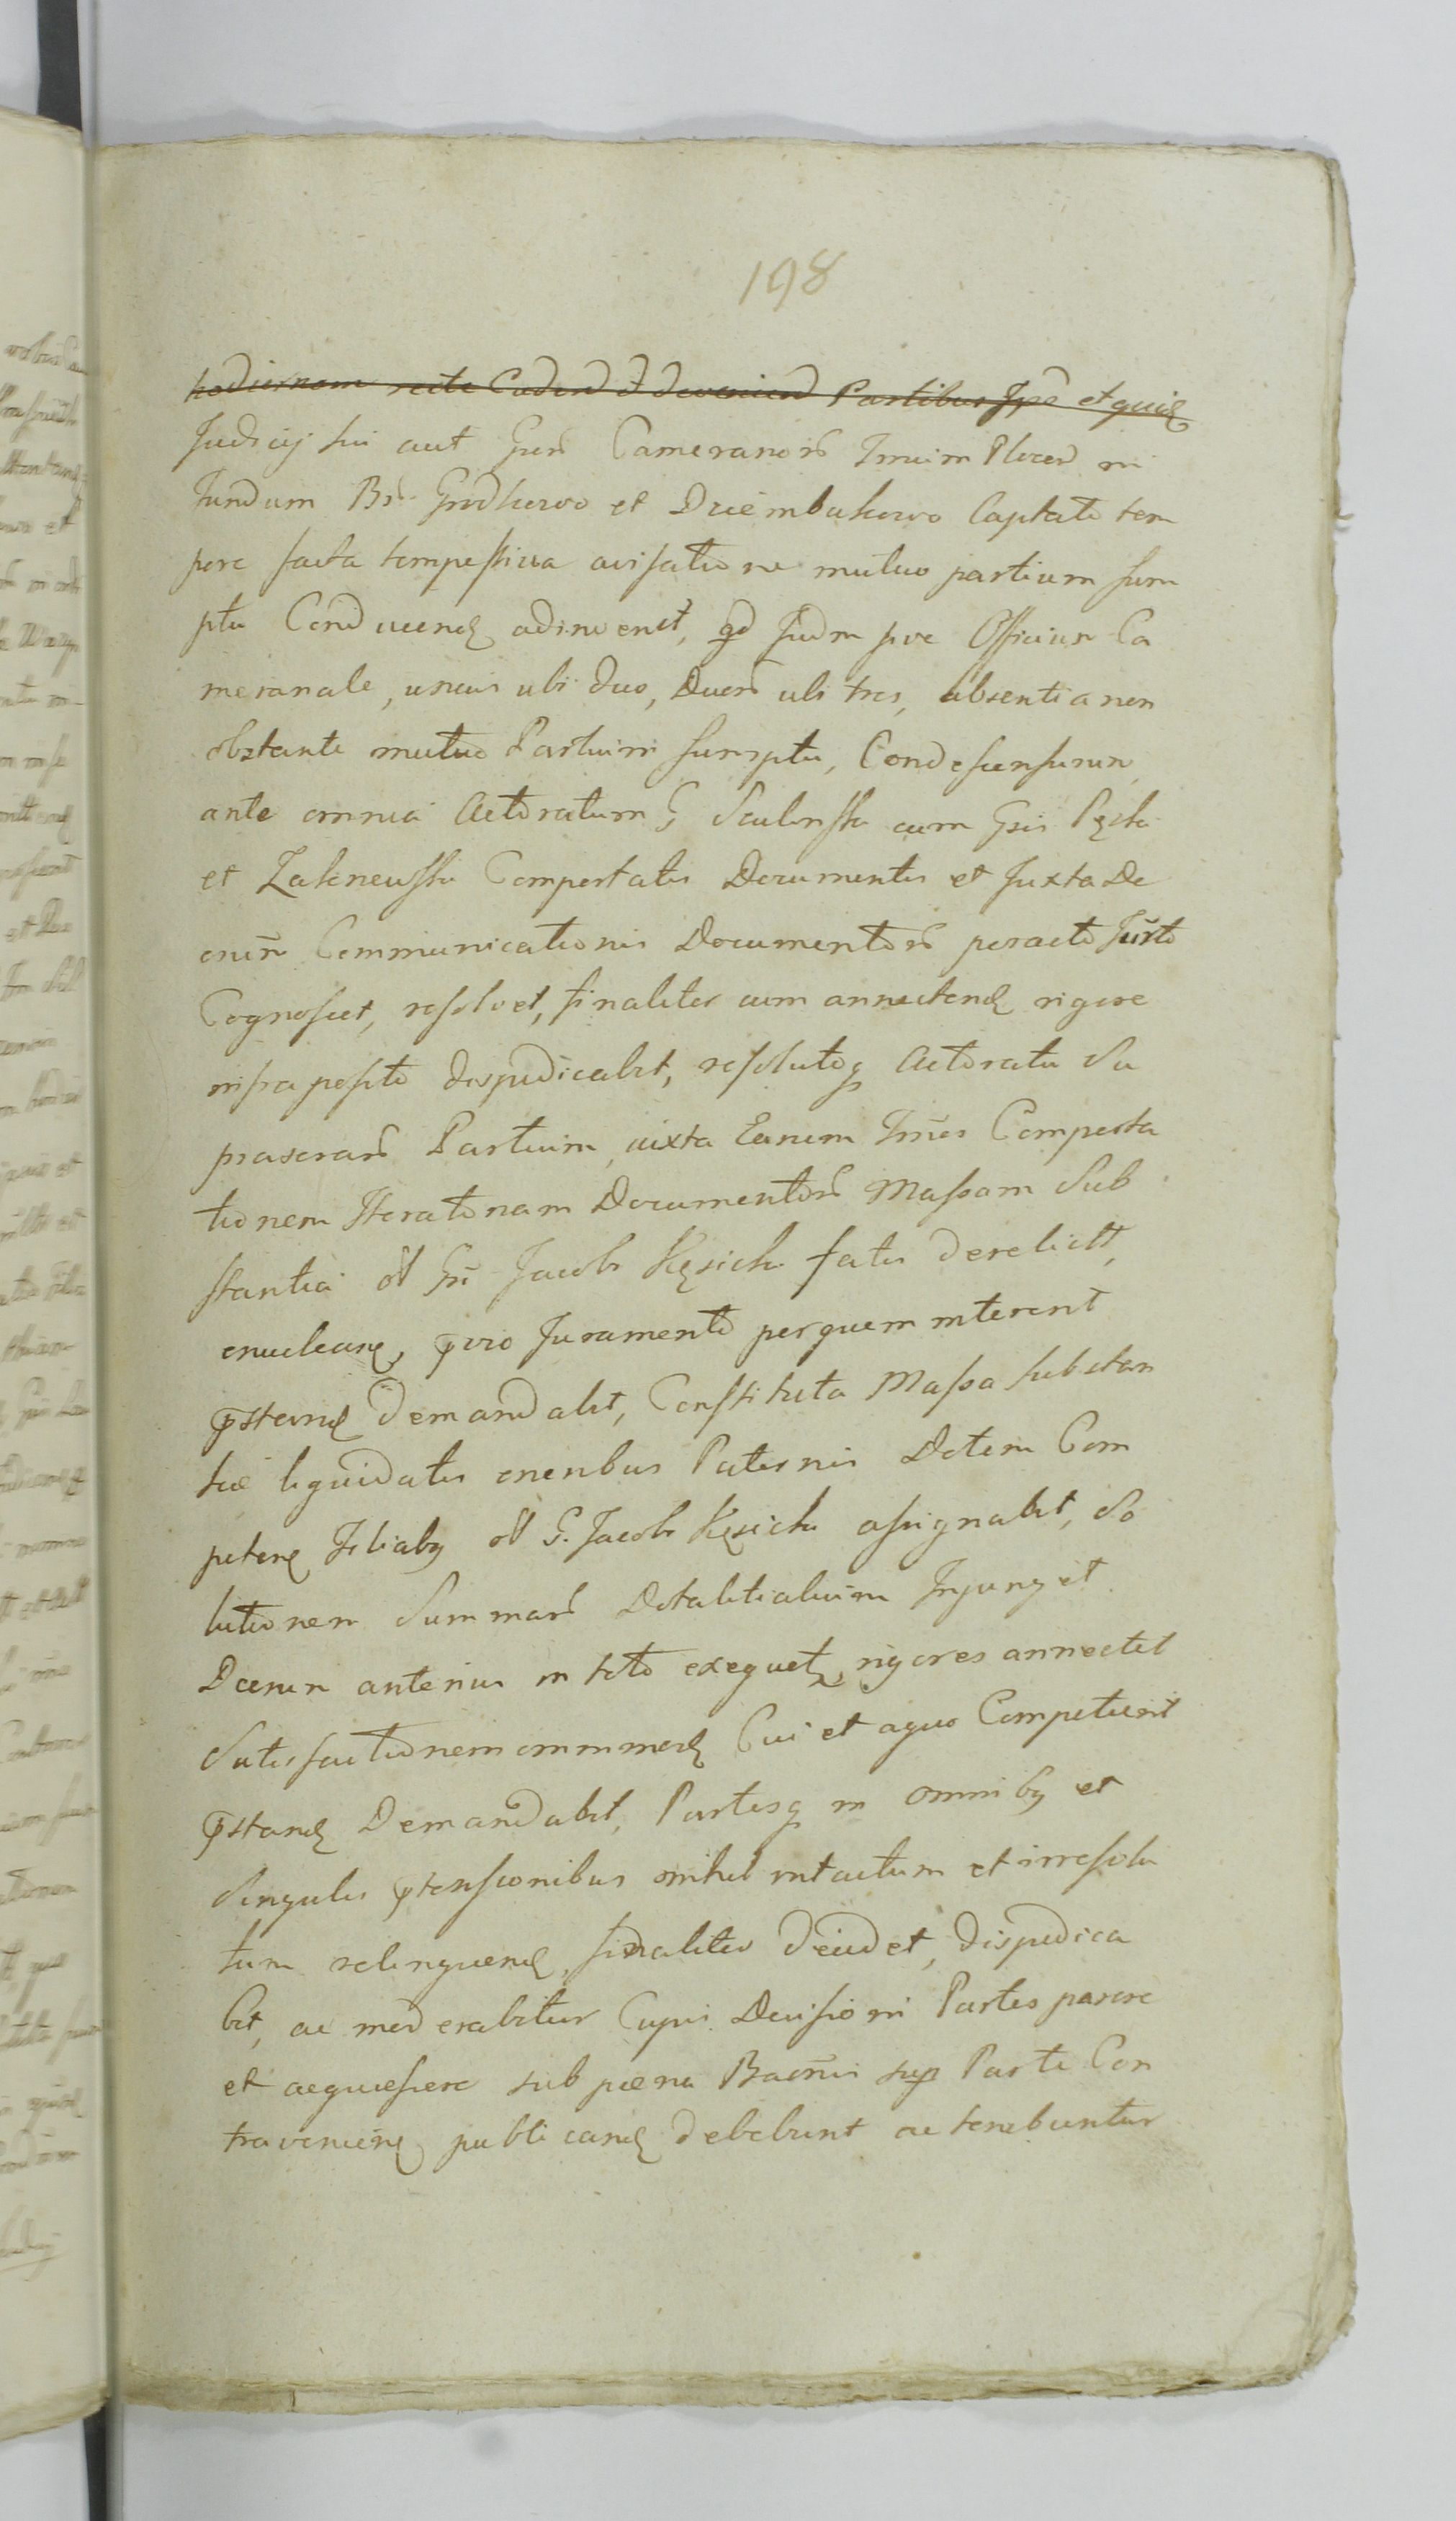 198
hodiernam recte Caden d deveniend Partibus Ipse et quidę
Judicij sui aut Gnrū Camerariorū Trnium Plocen in
fundum Br. Grodkowo et Dziembakowo Captato tem
pore facta tempestiva avisatione mutuo partium sum
ptu Conducend adinvenit, qd Judm sive Officium Ca
merariale, unius ubi duo, Duorū ubi tres, absentia non
obstante mutuo Partium sumptu, Condescensurum
ante omnia Actoratum G Skulmski cum Gsis Pęski
et Zakrzewski Comportatis Documentis et Juxta De
crum Communicationis Documentorū peracto Jurto
Cognoscet, resolvet, finaliter cum annectend rigore
infraposito disjudicabit, resolutoq Actoratu Su
prascrarū Partium, juxta Earum Trnos Comporta
tionem Iteratoriam Documentorū Massam Sub
stantia ol Gñ Jacob Kęsicki fatis derelictt,
enucleare, pvio Juramento per quem intererit
pstand demandabit, Constituta Massa substan
tiæ liquidatis oneribus Paternis Dotem Com
peten Filiabq ol G. Jacob Kęsicki assignabit, So
lutionem Summarū Dotalitialium Injunget
Dcrum anterius in toto exequet, rigores annectet
Satisfactionem ommimod Cui et a quo Competierit
pstand Demandabit, Partesq in omnibq et
Singulis ptensionibus nihil intactum et irresolu
tum relinquend, finaliter decidet, disjudica
bit, ac moderabitur Cujus Decisioni Partes parere
et acquiescere sub pœna Bannis sup Parte Con
travenien publicand debebunt ac tenebuntur